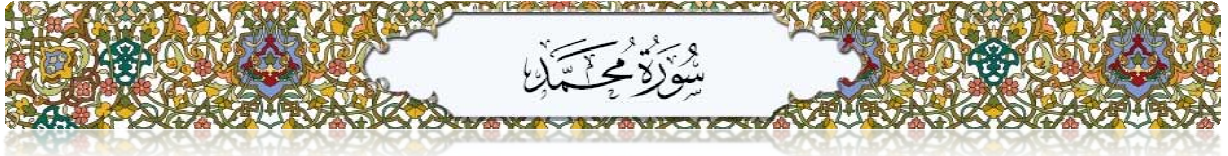 سُورَةُ مُحَمَّد